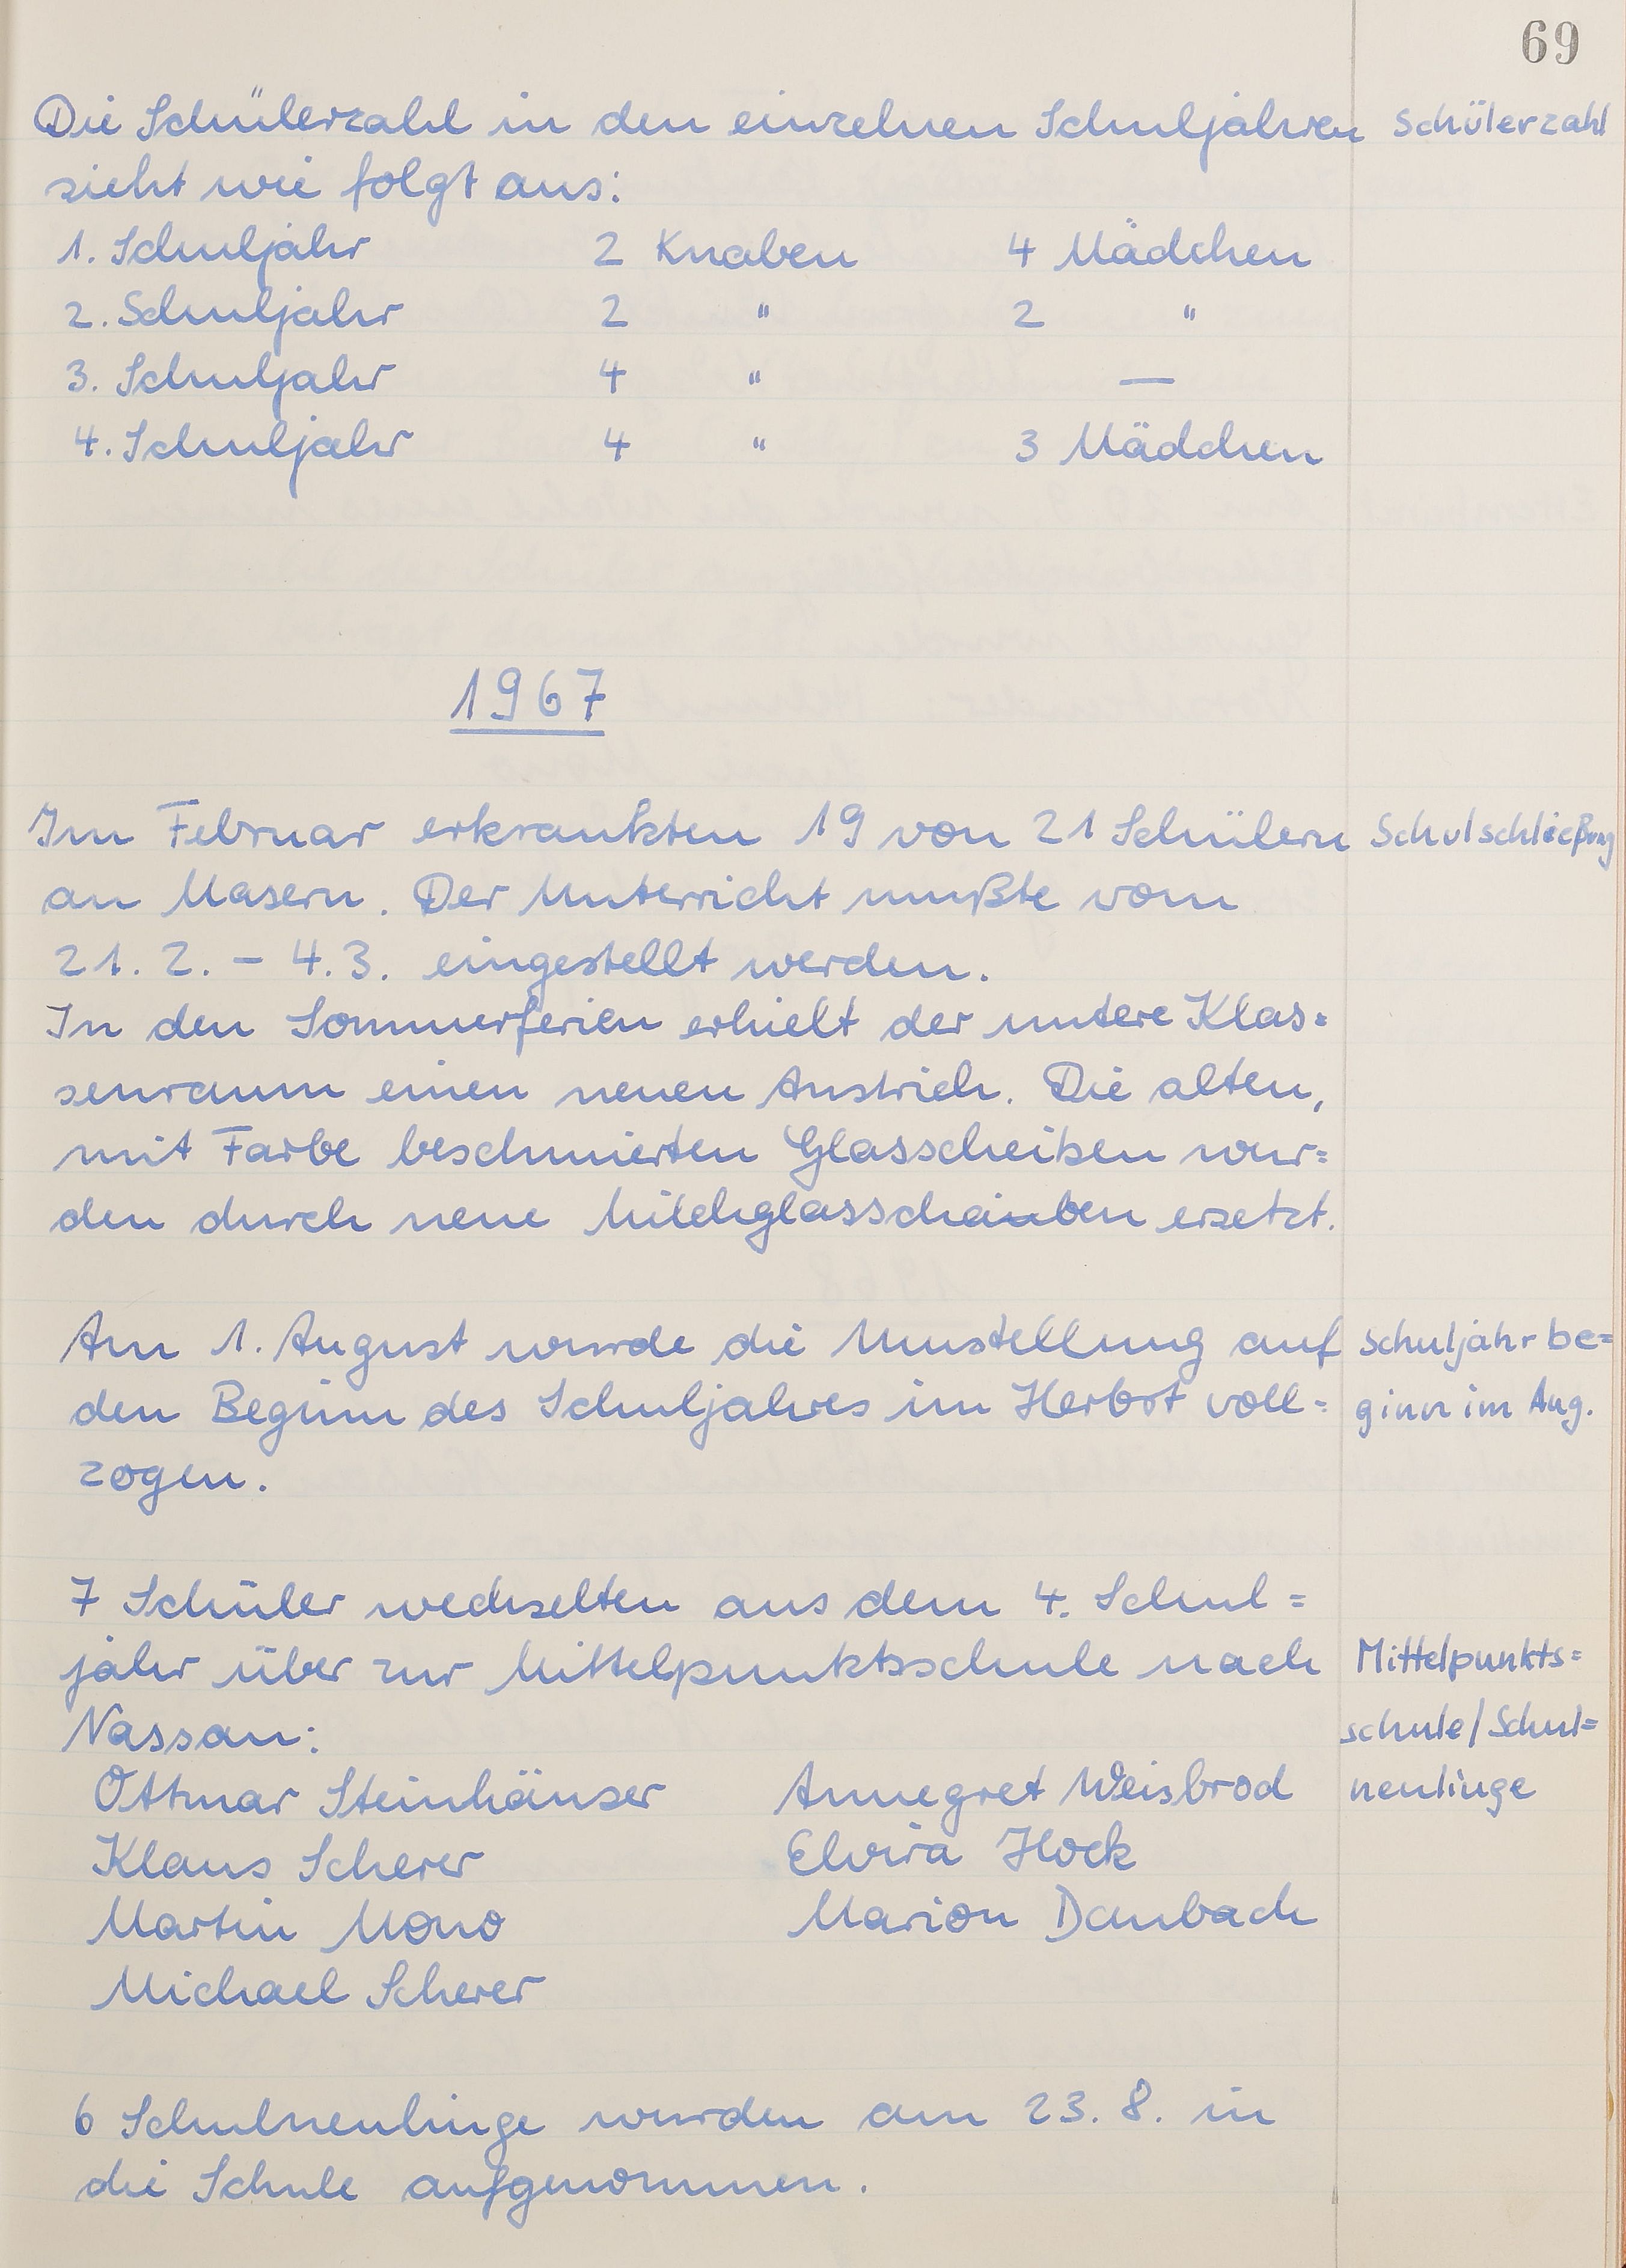 69
Die Schülerzahl in den einzelnen Schuljahren Schülerzahl
sieht wie folgt aus:
1. Schuljahr 2 Knaben 4 Mädchen
2. Schuljahr 2 " 2 "
3. Schuljahr 4 " —
4. Schuljahr 4 " 3 Mädchen
1967
Im Februar erkrankten 19 von 21 Schülern Schulschließung
an Masern. Der Unterricht mußte vom
21. 2. – 4. 3. eingestellt werden.
In den Sommerferien erhielt der untere Klas=
senraum einen neuen Anstrich. Die alten,
mit Farbe beschmierten Glasscheiben wur=
den durch neue Milchglasscheiben ersetzt.
Am 1. August wurde die Umstellung auf Schuljahrbe=
den Beginn des Schuljahres im Herbst voll= ginn im Aug.
zogen.
7 Schüler wechselten aus dem 4. Schul=
jahr über zur Mittelpunktsschule nach Mittelpunkts=
Nassau: schule/Schul=
Ottmar Steinhäuser Annegret Weisbrod neulinge
Klaus Scherer Elvira Hock
Martin Mono Marion Daubach
Michael Scherer
6 Schulneulinge wurden am 23. 8. in
die Schule aufgenommen.